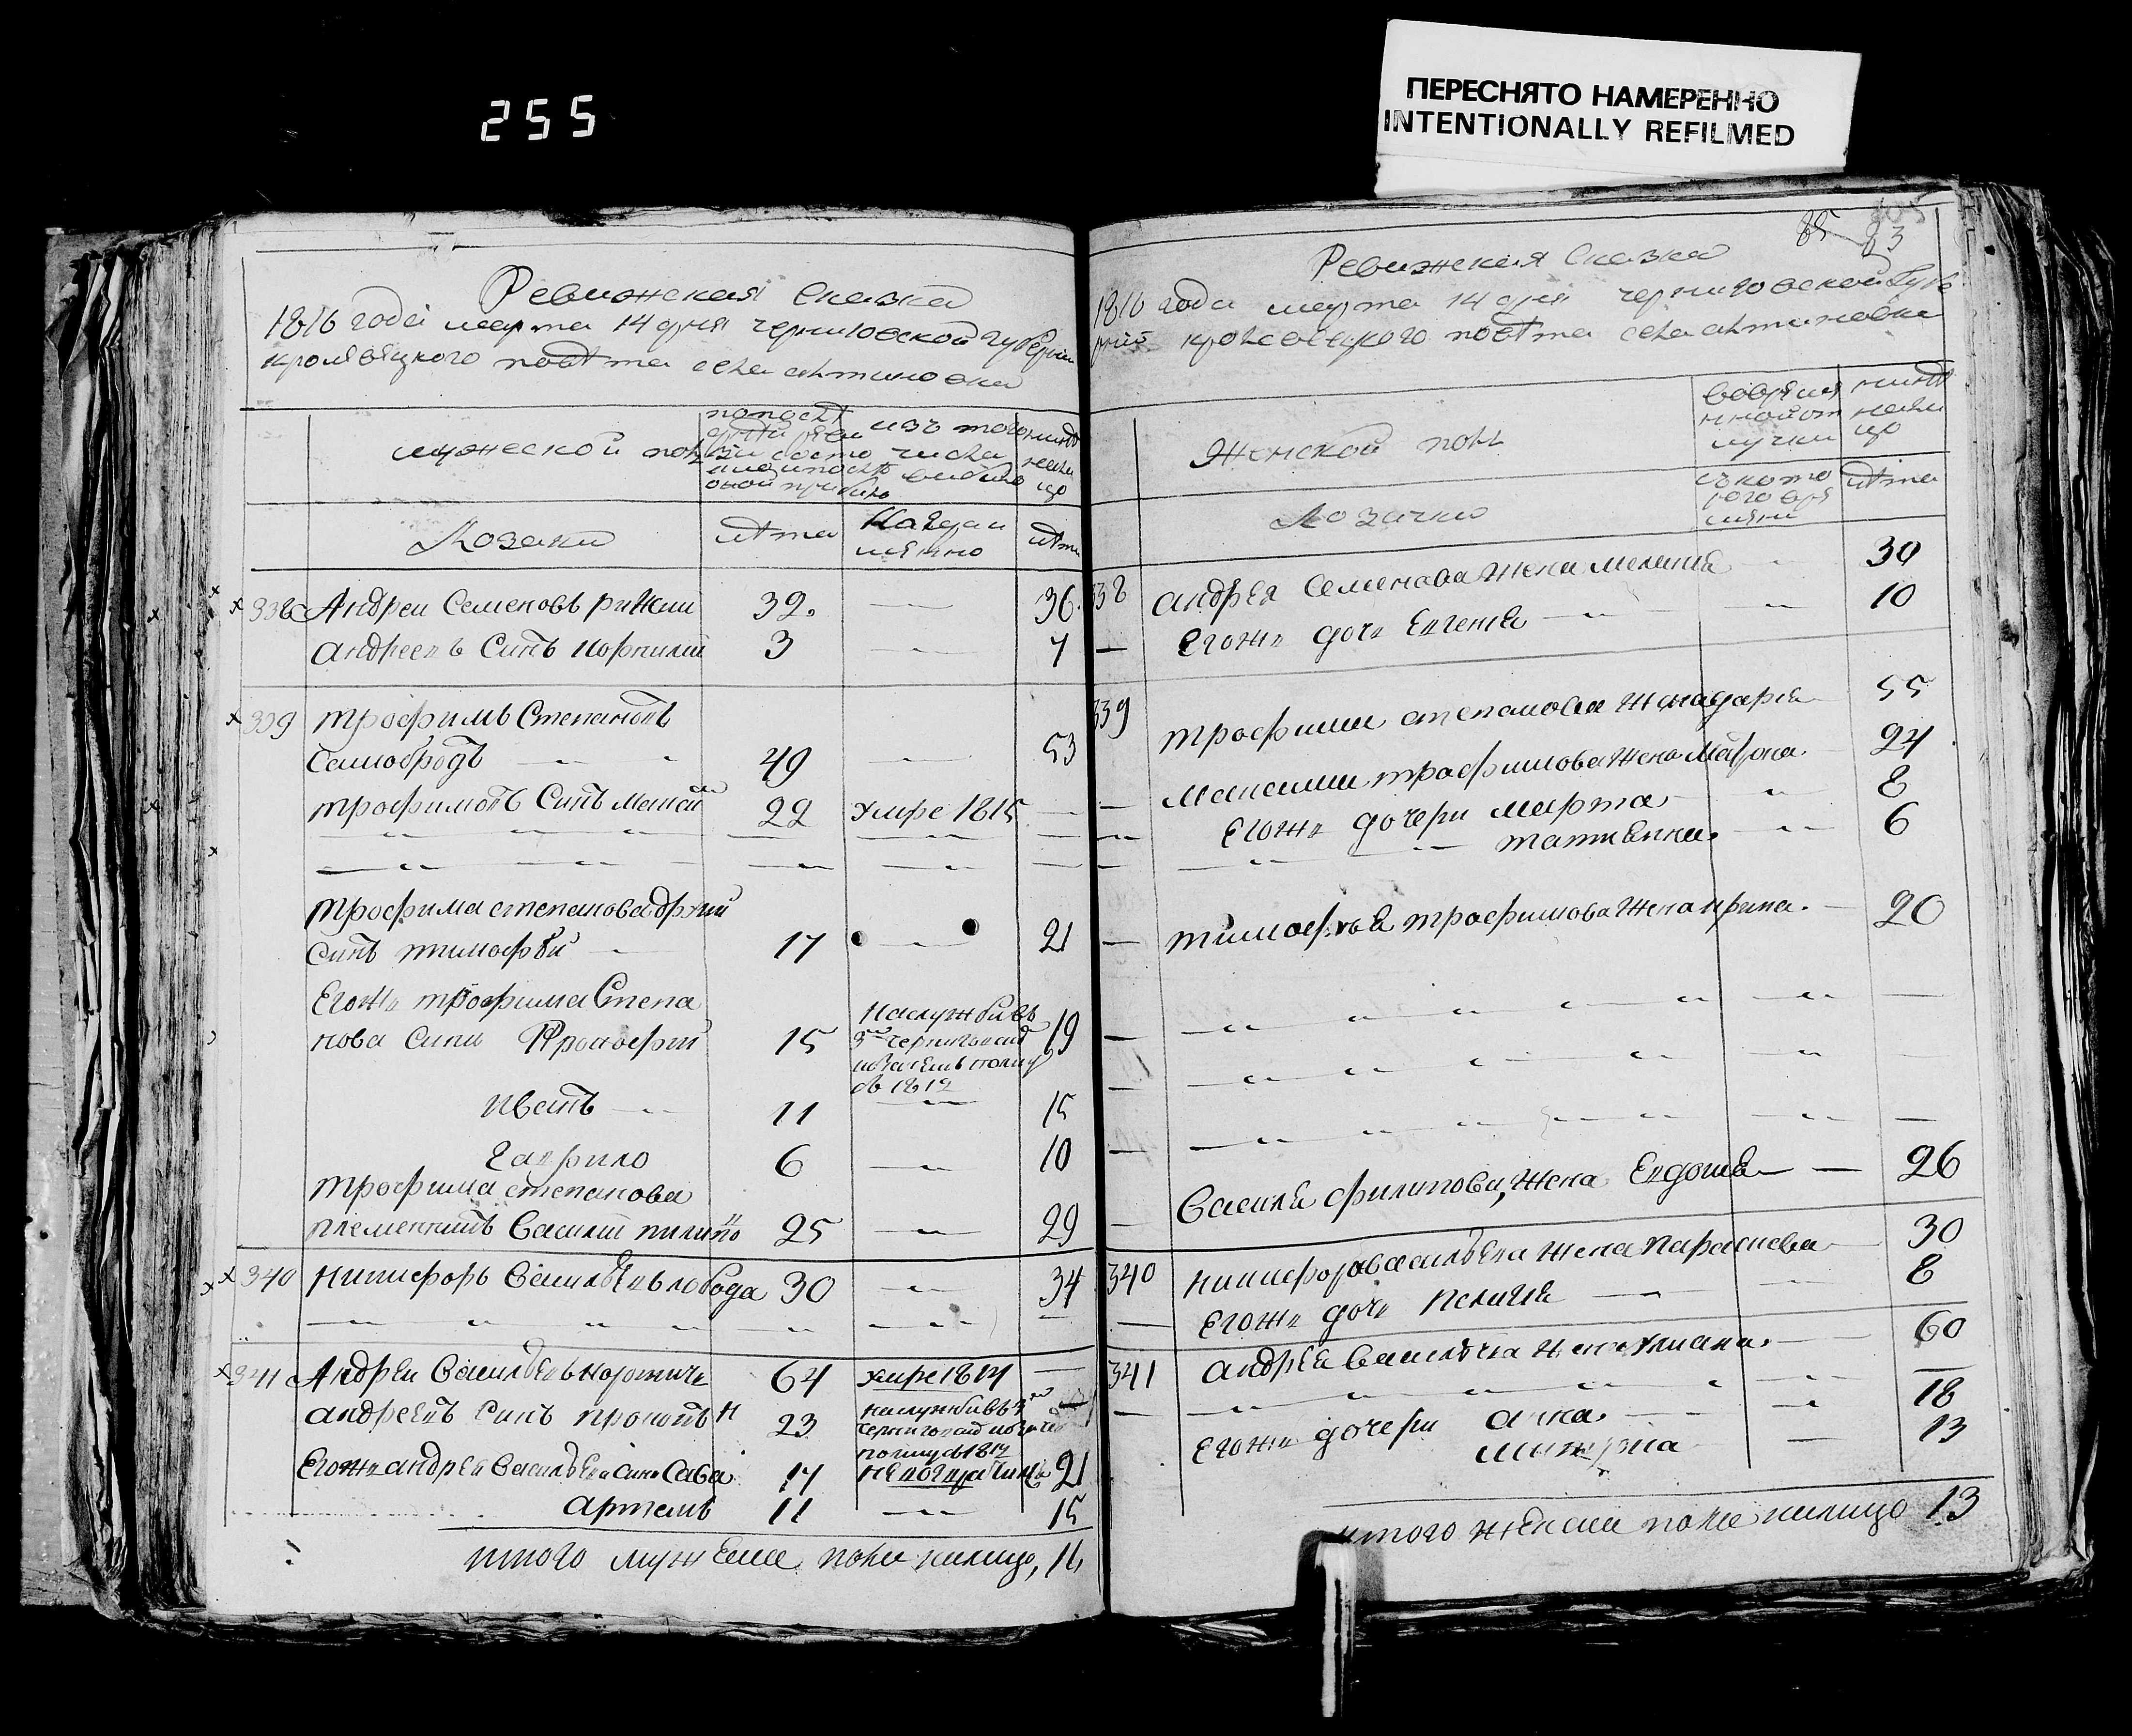 255
ПЕРЕСНЯТО НАМЕРЕННО
INTENTIONALLY REFILMED
Ревижская Сказка
1816 года марта 14 дня черниговской губернии
кролевецкого повѣта села алтиновки
мужеской полъ
изъ того
числа
Козаки
лѣта
Когда и
мянно
лѣта
338 Андреи Семеновъ рижии 32. 36
андреевъ Синъ Корнилий 3 7
339 трофимъ Степановъ
Самобродъ 49 53
трофимовъ Синъ 22 умре 1815
трофима степанова другий
Синъ тимофѣй 17 21
Егожъ трофима Степа
нова Сини Прокофий 15 19
на службѣ въ
3м черниговскомъ
в 1812
иванъ 11 15
гаврило 6 10
трофима степанова
племенникъ Василий 25 29
340 никифоръ Василѣевъ лобода 30 34
341 Андреи Василѣевъ 64 умре 1814
андреевъ Синъ прокопъ 23
на службѣ въ 3м
полку в 1812
Егожъ андрея Василѣева Синъ Сава 17 21
артемъ 11 15
итого мужеска пола налицо,
85 83
Ревижская Сказка
1816 года марта 14 дня черниговской губе
рнии кролевецкого повѣта села алтиновки
Женской полъ
во время
лучки
нинѣ
нали
цо
Козачки
съкото
рого вре
мяни
лѣта
338 андрея Семенова жена мелания 30
Егожъ дочъ Евгения 10
339 трофима степанова жена дария 55
максима трофимова жена 24
Егожъ дочери марта 8
татияна 6
тимофѣя трофимова жена ирина 20
Василя филипова, жена Евдокия 26
340 никифора василѣва жена параскева 30
Егожъ дочъ 8
341 андрея василѣва жена уляна 60
Егожъ дочери анна 18
13
итого женска пола налицо 13